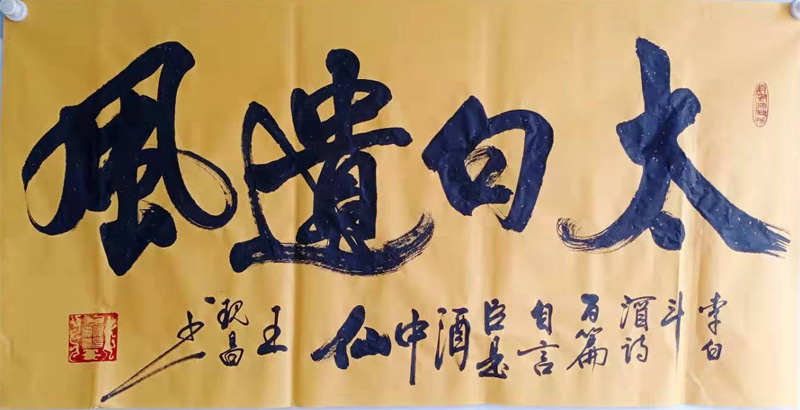 太白遺風
李白
斗
酒詩
百篇
自言
臣是
酒
中
仙
王
昌
书